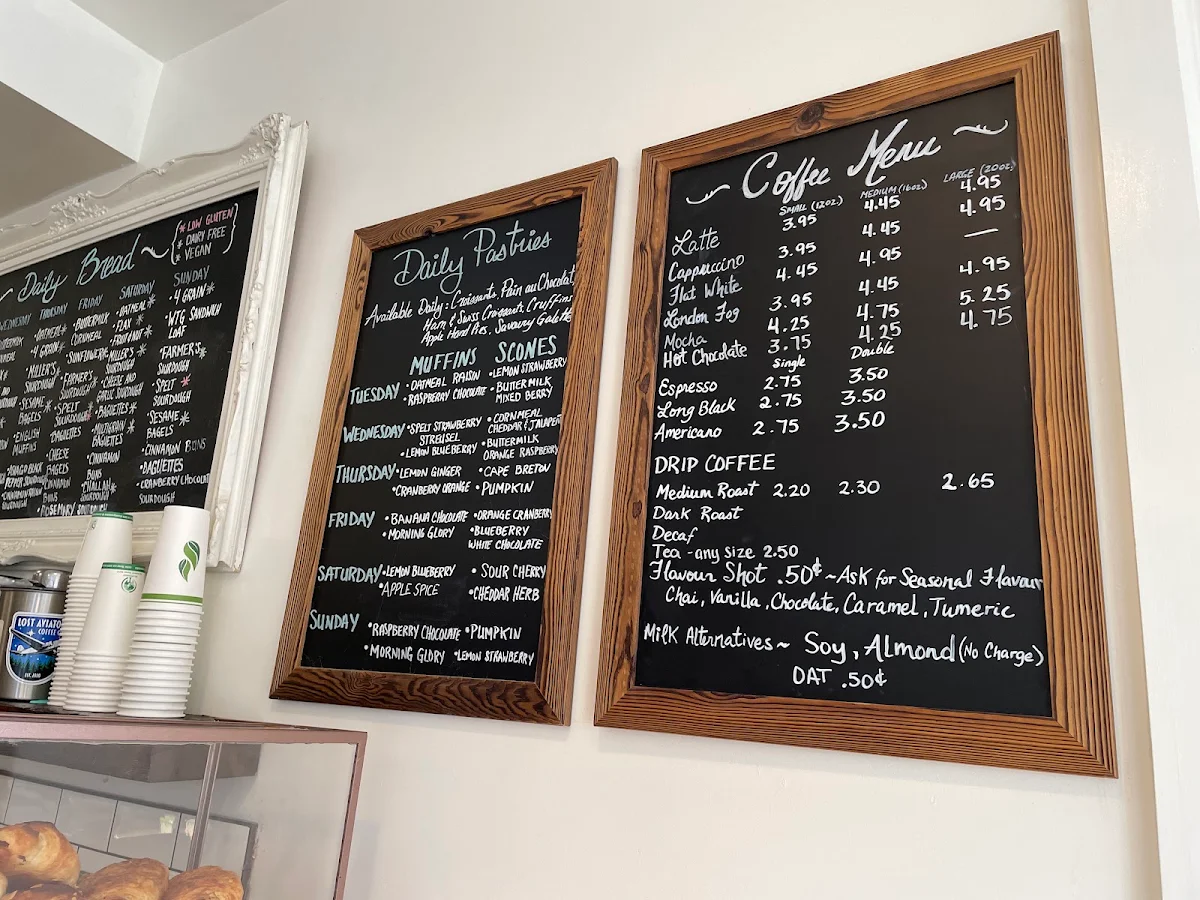 Daily Bread
* LOW GLUTEN
* DAIRY FREE
* VEGAN
THURSDAY
FRIDAY
•BUTTERMILK
CORNMEAL
•SUNFLOWER*
•FARMER'S
SOURDOUGH
•SPELT
SOURDOUGH
•BAGUETTES
•CHEESE
BAGELS
•CINNAMON
BUNS
SATURDAY
•OATMEAL*
•FLAX *
•FRUIT&NUT*
•MILLER'S
SOURDOUGH
•CHEESE AND
GARLIC SOURDOUGH
•BAGUETTES*
•MULTIGRAIN*
BAGUETTES
•CINNAMON
BUNS
SUNDAY
•4 GRAIN*
•WTG SANDWICH
LOAF
•FARMER'S*
SOURDOUGH
•SPELT *
SOURDOUGH
•SESAME*
BAGELS
•CINNAMON BUNS
•BAGUETTES
•CRANBERRY CHOCOLATE
SOURDOUGH
LOST AVIATOR
COFFEE
Daily Pastries
Available Daily: Croissants, Pain au Chocolat,
Ham & Swiss Croissants, Cruffins
Apple Hand Pies, Savoury Galette
MUFFINS SCONES
TUESDAY •OATMEAL RAISIN •LEMON STRAWBERRY
•RASPBERRY CHOCOLATE •BUTTERMILK
MIXED BERRY
WEDNESDAY •SPELT STRAWBERRY •CORNMEAL
STREUSEL CHEDDAR & JALAPEÑO
•LEMON BLUEBERRY •BUTTERMILK
ORANGE RASPBERRY
THURSDAY •LEMON GINGER •CAPE BRETON
•CRANBERRY ORANGE •PUMPKIN
FRIDAY •BANANA CHOCOLATE •ORANGE CRANBERRY
•MORNING GLORY •BLUEBERRY
WHITE CHOCOLATE
SATURDAY •LEMON BLUEBERRY •SOUR CHERRY
•APPLE SPICE •CHEDDAR HERB
SUNDAY •RASPBERRY CHOCOLATE •PUMPKIN
•MORNING GLORY •LEMON STRAWBERRY
Coffee Menu
SMALL (12oz) MEDIUM (16oz) LARGE (20oz)
Latte 3.95 4.45 4.95
Cappuccino 3.95 4.45 4.95
Flat White 4.45 4.95 —
London Fog 3.95 4.45 4.95
Mocha 4.25 4.75 5.25
Hot Chocolate 3.75 4.25 4.75
Single Double
Espresso 2.75 3.50
Long Black 2.75 3.50
Americano 2.75 3.50
DRIP COFFEE
Medium Roast 2.20 2.30 2.65
Dark Roast
Decaf
Tea - any size 2.50
Flavour Shot .50¢ ~ Ask for Seasonal Flavour
Chai, Vanilla, Chocolate, Caramel, Tumeric
Milk Alternatives ~ Soy, Almond (No Charge)
OAT .50¢